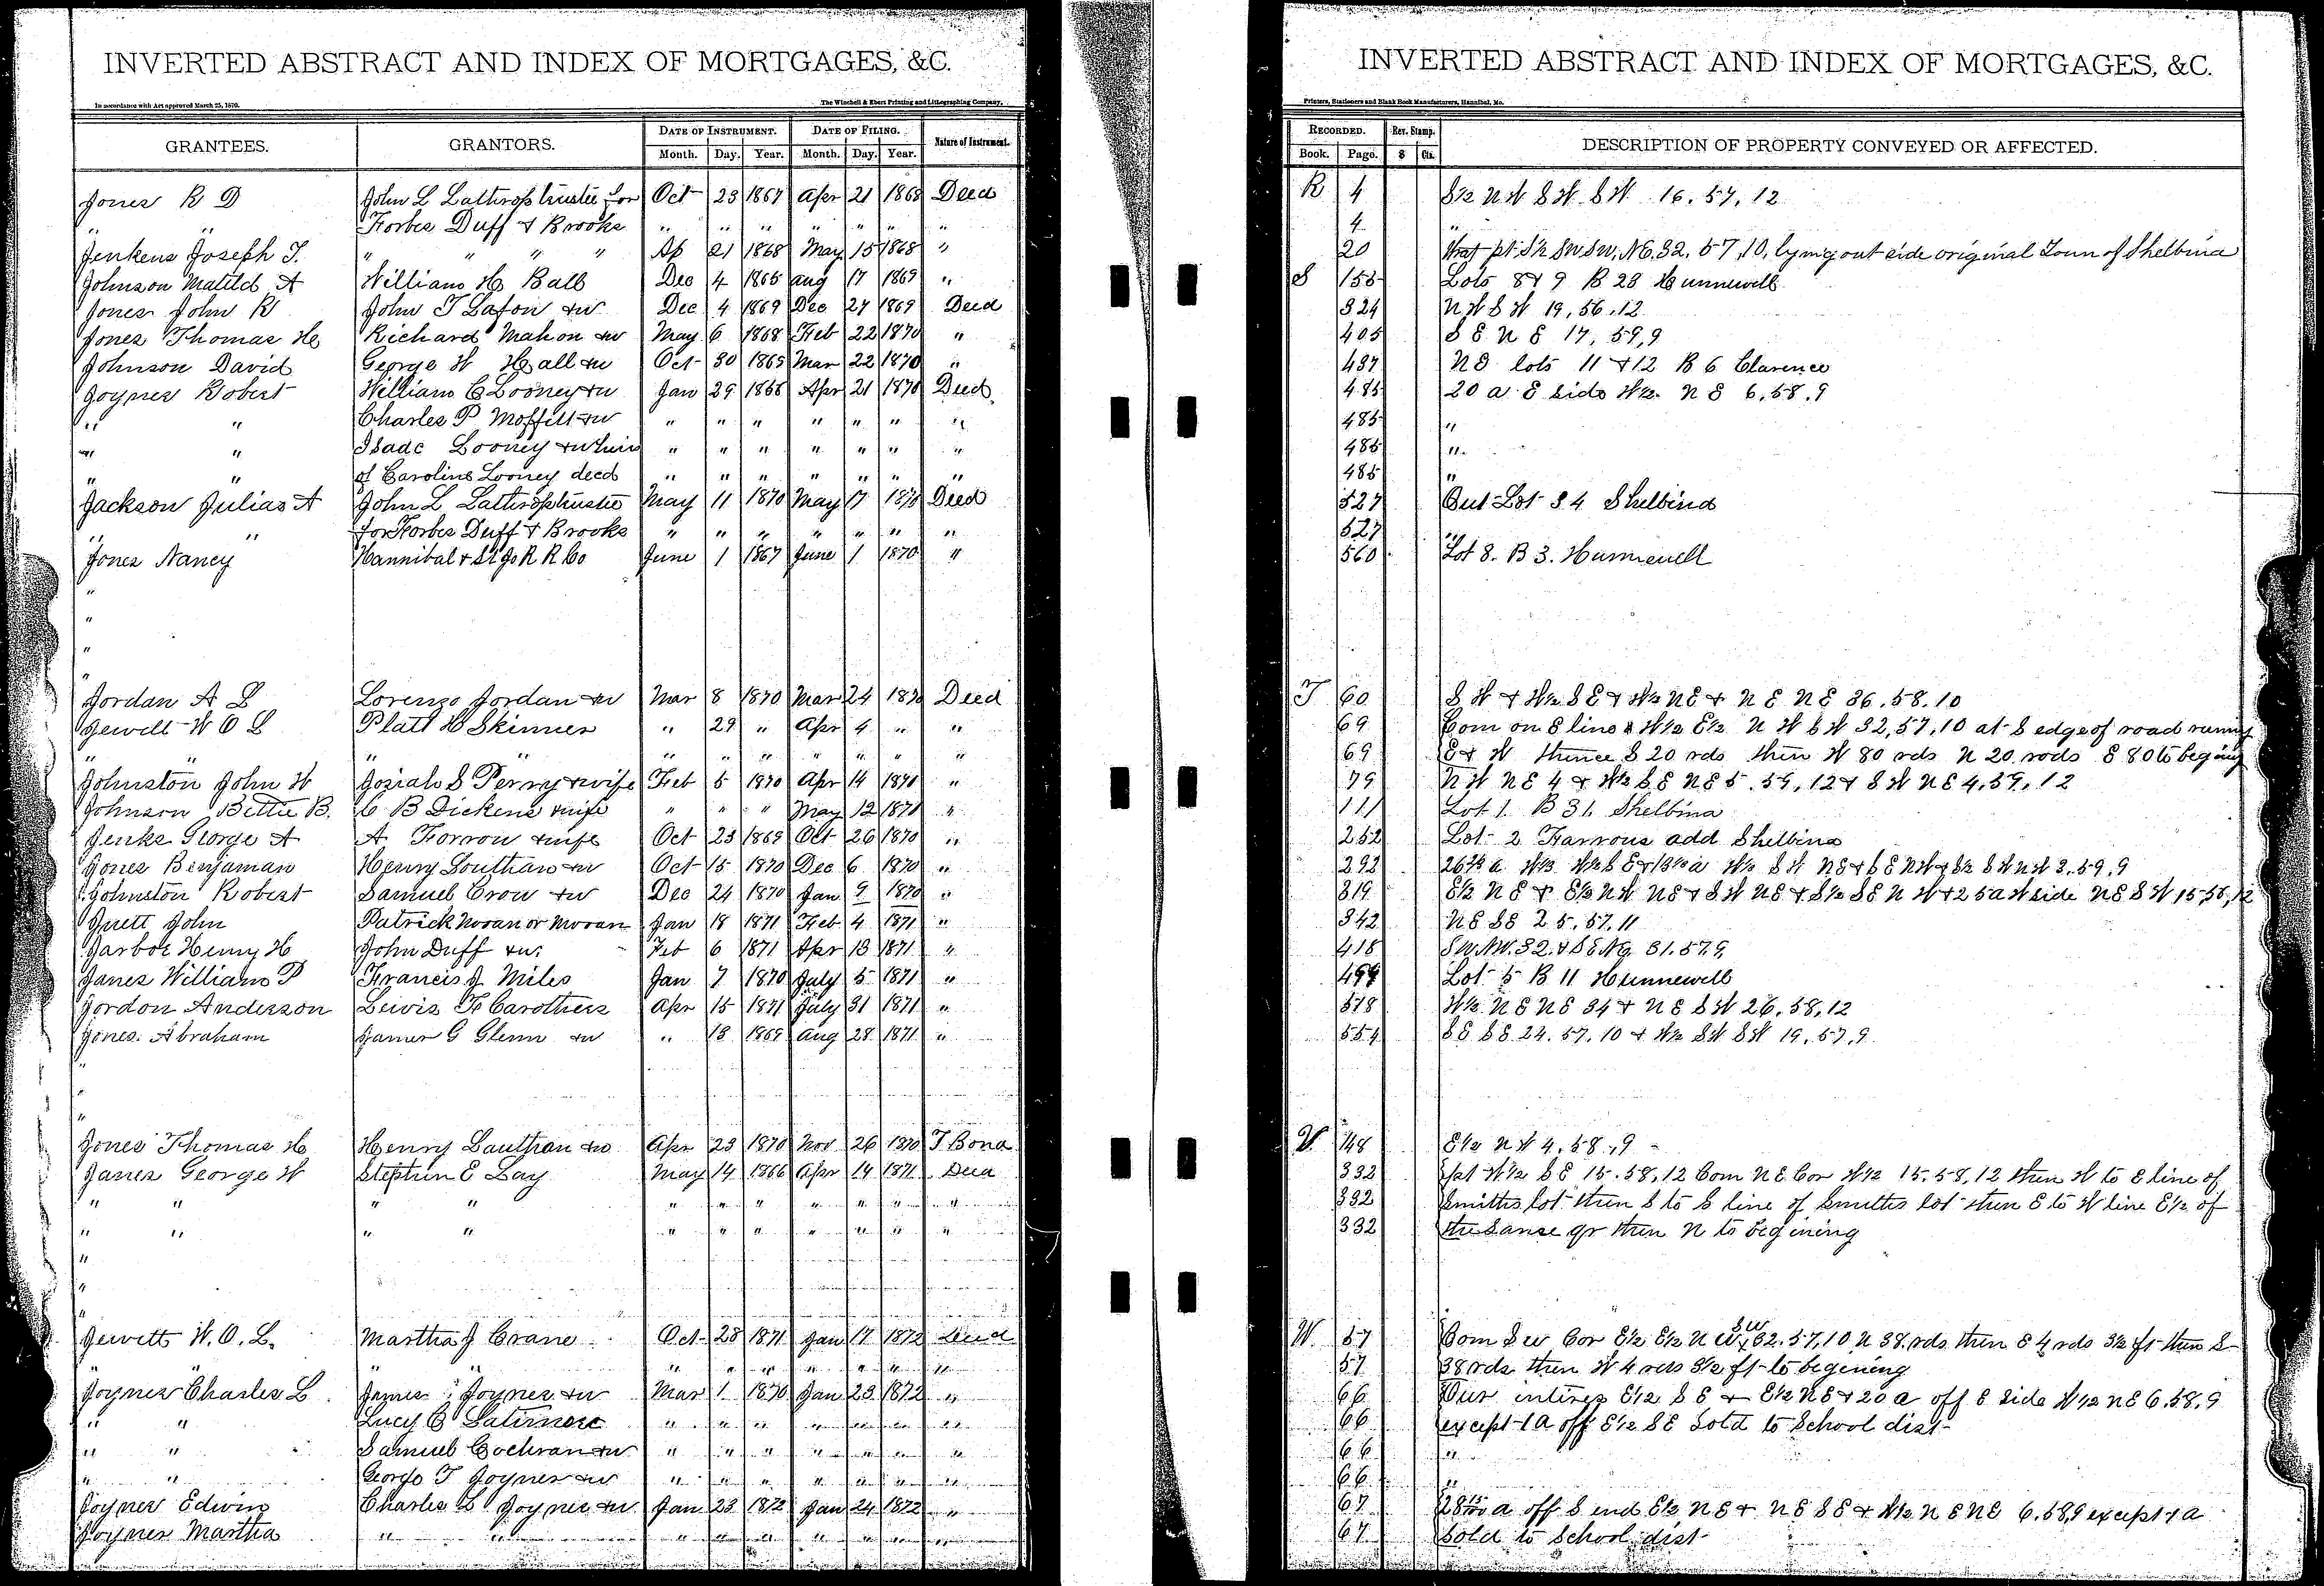 INVERTED ABSTRACT AND INDEX OF MORTGAGES, &C.
In accordance with Act approved March 25, 1870. The Winchell & Ebert Printing and Lithographing Company,
GRANTEES. GRANTORS. DATE OF INSTRUMENT. DATE OF FILING. Nature of Instrument.
Month. Day. Year. Month. Day. Year.
Jones R D John L Lathrop trustee for Oct 23 1867 Apr 21 1868 Deed
" " Forbes Duff & Brooks " " " " " " "
Jenkens Joseph T. " " " " Ap 21 1868 May 15 1868 "
Johnson Matild A William H Ball Dec 4 1865 Aug 17 1869 "
Jones John R John T Lafon & w Dec 4 1869 Dec 27 1869 Deed
Jones Thomas H Richard Mahon & w May 6 1868 Feb 22 1870 "
Johnson David George W Hall & w Oct 30 1865 Mar 22 1870 "
Joyner Robert William C Looney & w Jan 29 1868 Apr 21 1870 Deed
" " Charles P Moffitt & w " " " " " " "
" " Isaac Looney & w heirs " " " " " " "
" " of Caroline Looney decd " " " " " " "
Jackson Julias A John L Lathrop trustee May 11 1870 May 17 1870 Deed
" " for Forbes Duff & Brooks " " " " " " "
Jones Nancy Hannibal & St Jo R R Co June 1 1867 June 1 1870 "
"
"
"
"
Jordan A L Lorenzo Jordan & w Mar 8 1870 Mar 24 1870 Deed
Jewett W O L Platt H Skinner " 29 " Apr 4 " "
" " " " " " " " " " "
Johnston John W Josiah S Perry & wife Feb 5 1870 Apr 14 1870 "
Johnson Bettie B. C B Dickens & wife " " " May 12 1870 "
Jenks George A A Forrow & wife Oct 23 1869 Oct 26 1870 "
Jones Benjaman Henry Louthan & w Oct 15 1870 Dec 6 1870 "
Johnston Robert Samuel Crow & w Dec 24 1870 Jan 9 1870 "
Juett John Patrick Noran or Moran Jan 18 1871 Feb 4 1871 "
Jarboe Henry H John Duff & w. Feb 6 1871 Apr 13 1871 "
Janes William P Francis J Miles Jan 7 1870 July 5 1871 "
Jordon Anderson Lewis F Carothers Apr 15 1871 July 31 1871 "
Jones Abraham James G Glenn & w " 13 1869 Aug 28 1871 "
"
"
"
Jones Thomas H Henry Louthan & w Apr 23 1870 Nov 26 1870 T Bond
Janes George W Stephen E Lay May 14 1866 Apr 14 1871 Deed
" " " " " " " " " " "
" " " " " " " " " " "
"
"
"
Jewett W. O. L. Martha J Crane Oct 28 1871 Jan 17 1872 Deed
" " " " " " " " " " "
Joyner Charles L James Joyner & w Mar 1 1870 Jan 23 1872 "
" " Lucy C Latimore " " " " " " "
" " Samuel Cochran & w " " " " " " "
" " George T Joyner & w " " " " " " "
Joyner Edwin Charles L Joyner & w Jan 23 1872 Jan 24 1872 "
Joyner Martha " " " " " " " " "
INVERTED ABSTRACT AND INDEX OF MORTGAGES, &C.
Printers, Stationers and Blank Book Manufacturers, Hannibal, Mo.
RECORDED. Rev. Stamp. DESCRIPTION OF PROPERTY CONVEYED OR AFFECTED.
Book. Page. $ Cts.
R 4 S½ N W S W S W 16. 57, 12
4 "
20 that pt S½ SW SW, NE 32. 57, 10, lying out side original Town of Shelbina
S 155 Lots 8 & 9 B 28 Hunnewell
324 N W S W 19, 56, 12
405 S E N E 17, 59, 9
437 N D lots 11 & 12 B 6 Clarence
485 20 a E side W½ N E 6, 58, 9
485 "
485 "
485 "
527 Out Lot 84 Shelbina
527 "
560 Lot 8. B 3. Hunnewell
T 60 S W & W½ S E & W½ N E & N E N E 36. 58. 10
69 Com on E line W½ E½ N W S W 32, 57, 10 at S edge of road runing
69 E & W thence S 20 rds then W 80 rds N 20 rods E 80 to begining
79 N W N E 4 & W½ S E N E 5. 59, 12 & S W N E 4, 59, 12
111 Lot 1. B 31. Shelbina
252 Lot 2 Farrows add Shelbina
292 S½ S W N W 3. 59. 9
319 E½ N E & E½ N W N E & S W N E & S½ S E N W & 25 a W side N E S W 15, 58, 12
342 N E S E 25. 57. 11
418 SW. NW. 32. & S E N E. 31. 57. 9
499 Lot 5 B 11 Hunnewell
518 W½ N E N E 34 & N E S W 26. 58, 12
554 S E S E 24. 57, 10 & W½ S W S W 19, 57, 9
V 148 E½ N W 4. 58, 9
332 pt W½ S E 15. 58, 12 Com N E Cor W½ 15. 58, 12 then W to E line of
332 Smiths lot then S to S line of Smiths lot then E to W line E½ of
332 the same qr then N to begining
W 57 Com S W Cor E½ E½ N W SW 32. 57, 10 N 38 rds then E 4 rds 3½ ft then S
57 38 rds then W 4 rds 3½ ft to begening
66 Our intires E½ S E & E½ N E & 20 a off E side W½ N E 6. 58. 9
66 except 1 A off E½ S E Sold to School dist
66 "
66 "
67 a off S end E½ N E & N E S E & W½ N E N E 6. 58, 9 except 1 a
67 Sold to School dist